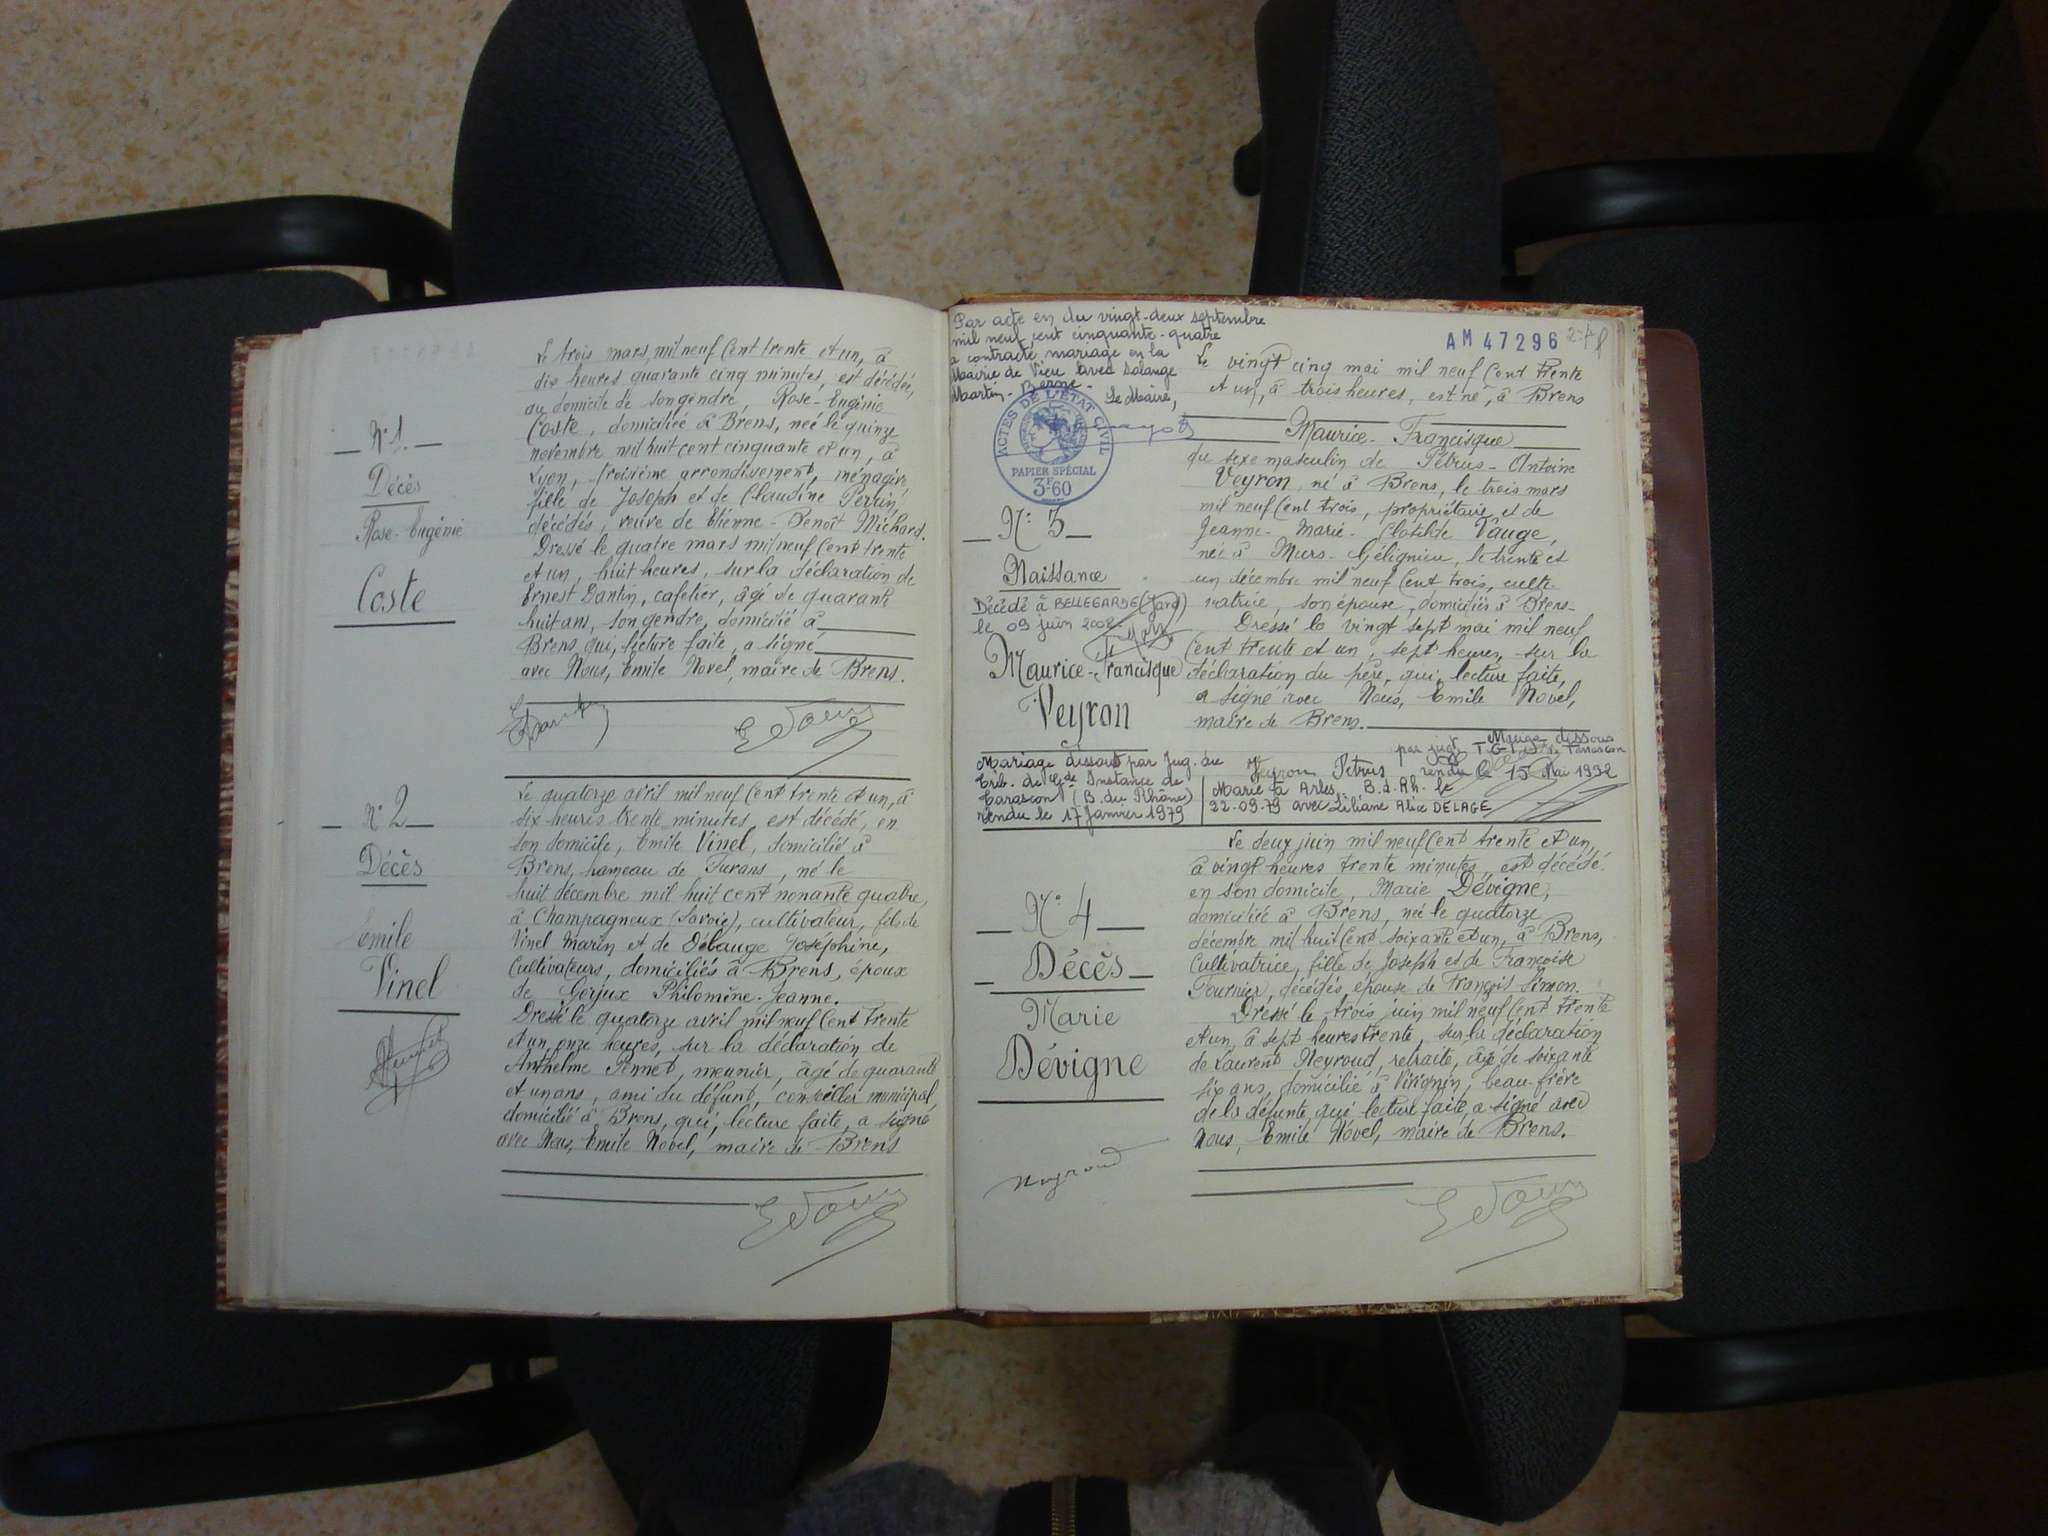 Le trois mars, mil neuf cent trente et un, à
dix heures quarante cinq minutes, est décédée,
au domicile de son gendre, Rose-Eugénie
Coste, domiciliée à Brens, née le quinze
novembre mil huit cent cinquante et un, à
Lyon, troisième arrondissement, ménagère
fille de Joseph et de Claudine Perrin,
décédés, veuve de Etienne-Benoît Michard.
Dressé le quatre mars mil neuf cent trente
et un, huit heures, sur la déclaration de
Ernest Dantin, cafetier, âgé de quarante
huit ans, son gendre, domicilié à
Brens qui, lecture faite, a signé
avec Nous, Emile Novel, maire de Brens.
N° 1.
Décès
Rose-Eugénie
Coste
Le quatorze avril mil neuf cent trente et un, à
six heures trente minutes, est décédé, en
son domicile, Emile Vinel, domicilié à
Brens, hameau de Furans, né le
huit décembre mil huit cent nonante quatre,
à Champagneux (Savoie), cultivateur, fils de
Vinel Marin et de Délauge Joséphine,
cultivateurs, domiciliés à Brens, époux
de Gorjux Philomène-Jeanne.
Dressé le quatorze avril mil neuf cent trente
et un, onze heures, sur la déclaration de
Anthelme Pennet, meunier, âgé de quarante
et un ans, ami du défunt, conseiller municipal,
domicilié à Brens, qui, lecture faite, a signé
avec Nous, Emile Novel, maire de Brens
N° 2
Décès
Emile
Vinel
Par acte en du vingt-deux septembre
mil neuf cent cinquante-quatre
a contracté mariage en la
Mairie de Vieu avec Solange
Martin-Berne-
Le Maire,
ACTES DE L'ÉTAT CIVIL
PAPIER SPÉCIAL
3F60
AM 47296
Le vingt cinq mai mil neuf cent trente
et un, à trois heures, est né, à Brens
Maurice-Francisque
du sexe masculin de Pétrus-Antoine
Veyron, né à Brens, le trois mars
mil neuf cent trois, propriétaire et de
Jeanne-Marie-Clotilde Vauge,
née à Murs-Gélignieu, le trente et
un décembre mil neuf cent trois, culti-
vatrice, son épouse, domiciliés à Brens-
Dressé le vingt sept mai mil neuf
cent trente et un, sept heures, sur la
déclaration du père, qui, lecture faite,
a signé avec Nous, Emile Novel,
maire de Brens.
N° 3
Naissance
Décédé à BELLEGARDE (Gard)
le 09 juin 2002
Maurice-Francisque
Veyron
Mariage dissout par Jug. du
Trib. de Gde Instance de
Tarascon (B. du Rhône)
rendu le 17 Janvier 1979
Veyron Pétrus
Marié à Arles, B.d.Rh. le
22-09-79 avec Liliane Alix DELAGE
Mariage dissous
par jugt T.G.I. de Tarascon
rendu le 15 Mai 1992
Le deux juin mil neuf cent trente et un,
à vingt heures trente minutes, est décédée
en son domicile, Marie Dévigne,
domiciliée à Brens, née le quatorze
décembre mil huit cent soixante et un, à Brens,
cultivatrice, fille de Joseph et de Françoise
Fournier, décédés, épouse de François Simon.
Dressé le trois juin mil neuf cent trente
et un, à sept heures trente, sur la déclaration
de Laurent Neyroud, retraité, âgé de soixante
six ans, domicilié à Virignin, beau-frère
de la défunte, qui lecture faite, a signé avec
Nous, Emile Novel, maire de Brens.
N° 4
Décès
Marie
Dévigne
Neyroud